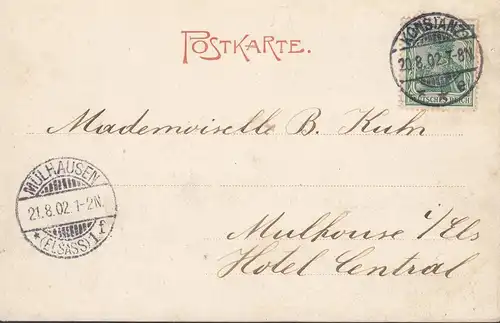 POSTKARTE.
KONSTANZ
20.8.02.7-8N.
Mademoiselle B. Kuhn
MÜLHAUSEN
21.8.02.1-2N.
*(ELSASS)1f
Mulhouse i/Els
Hotel Central